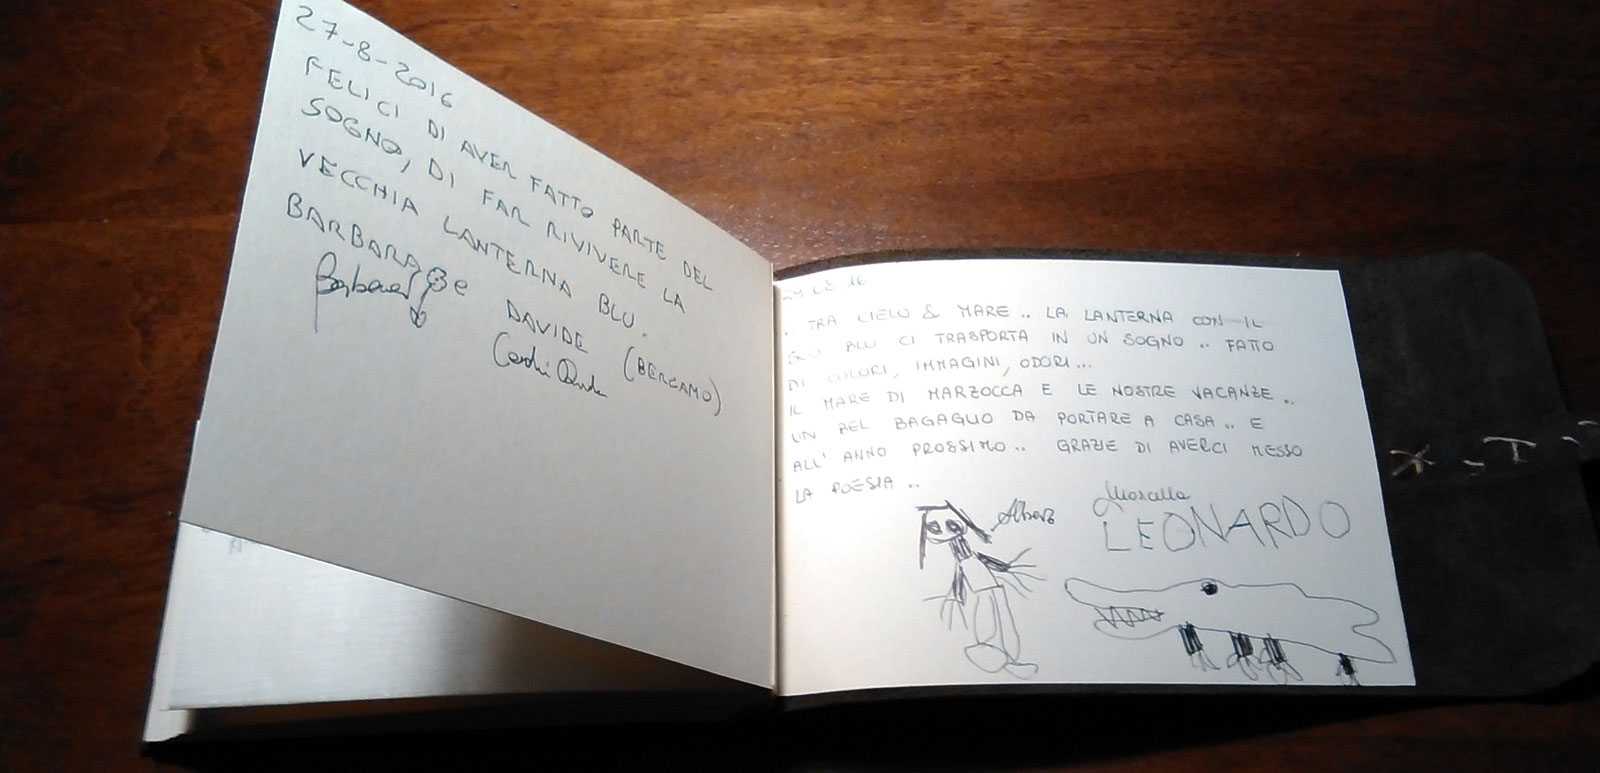 27-8-2016
FELICI DI AVER FATTO PARTE DEL
SOGNO, DI FAR RIVIVERE LA
VECCHIA LANTERNA BLU.
BARBARA e DAVIDE (BERGAMO)
.. TRA CIELO & MARE .. LA LANTERNA CON IL
BLU CI TRASPORTA IN UN SOGNO .. FATTO
DI COLORI, IMMAGINI, ODORI...
IL MARE DI MARZOCCA E LE NOSTRE VACANZE ..
UN BEL BAGAGLIO DA PORTARE A CASA .. E
ALL'ANNO PROSSIMO .. GRAZIE DI AVERCI MESSO
LA POESIA ..
LEONARDO